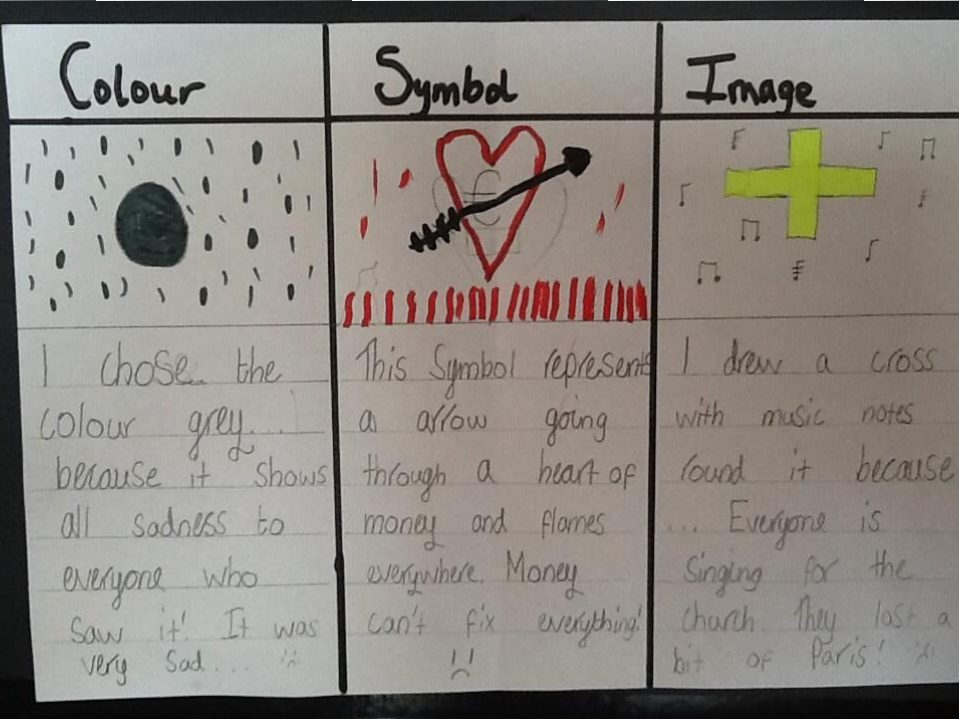 Colour
Symbol
Image
€
I chose the
colour grey...
because it shows
all sadness to
everyone who
saw it! It was
very sad...
This Symbol represents
a arrow going
through a heart of
money and flames
everywhere. Money
can't fix everything!
I drew a cross
with music notes
round it because
... Everyone is
Singing for the
church. They lost a
bit of Paris!